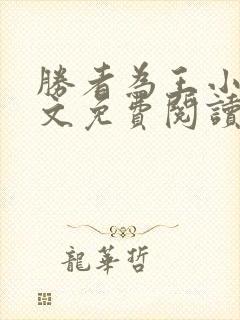 勝者為王小
文免費閱讀
龍華哲